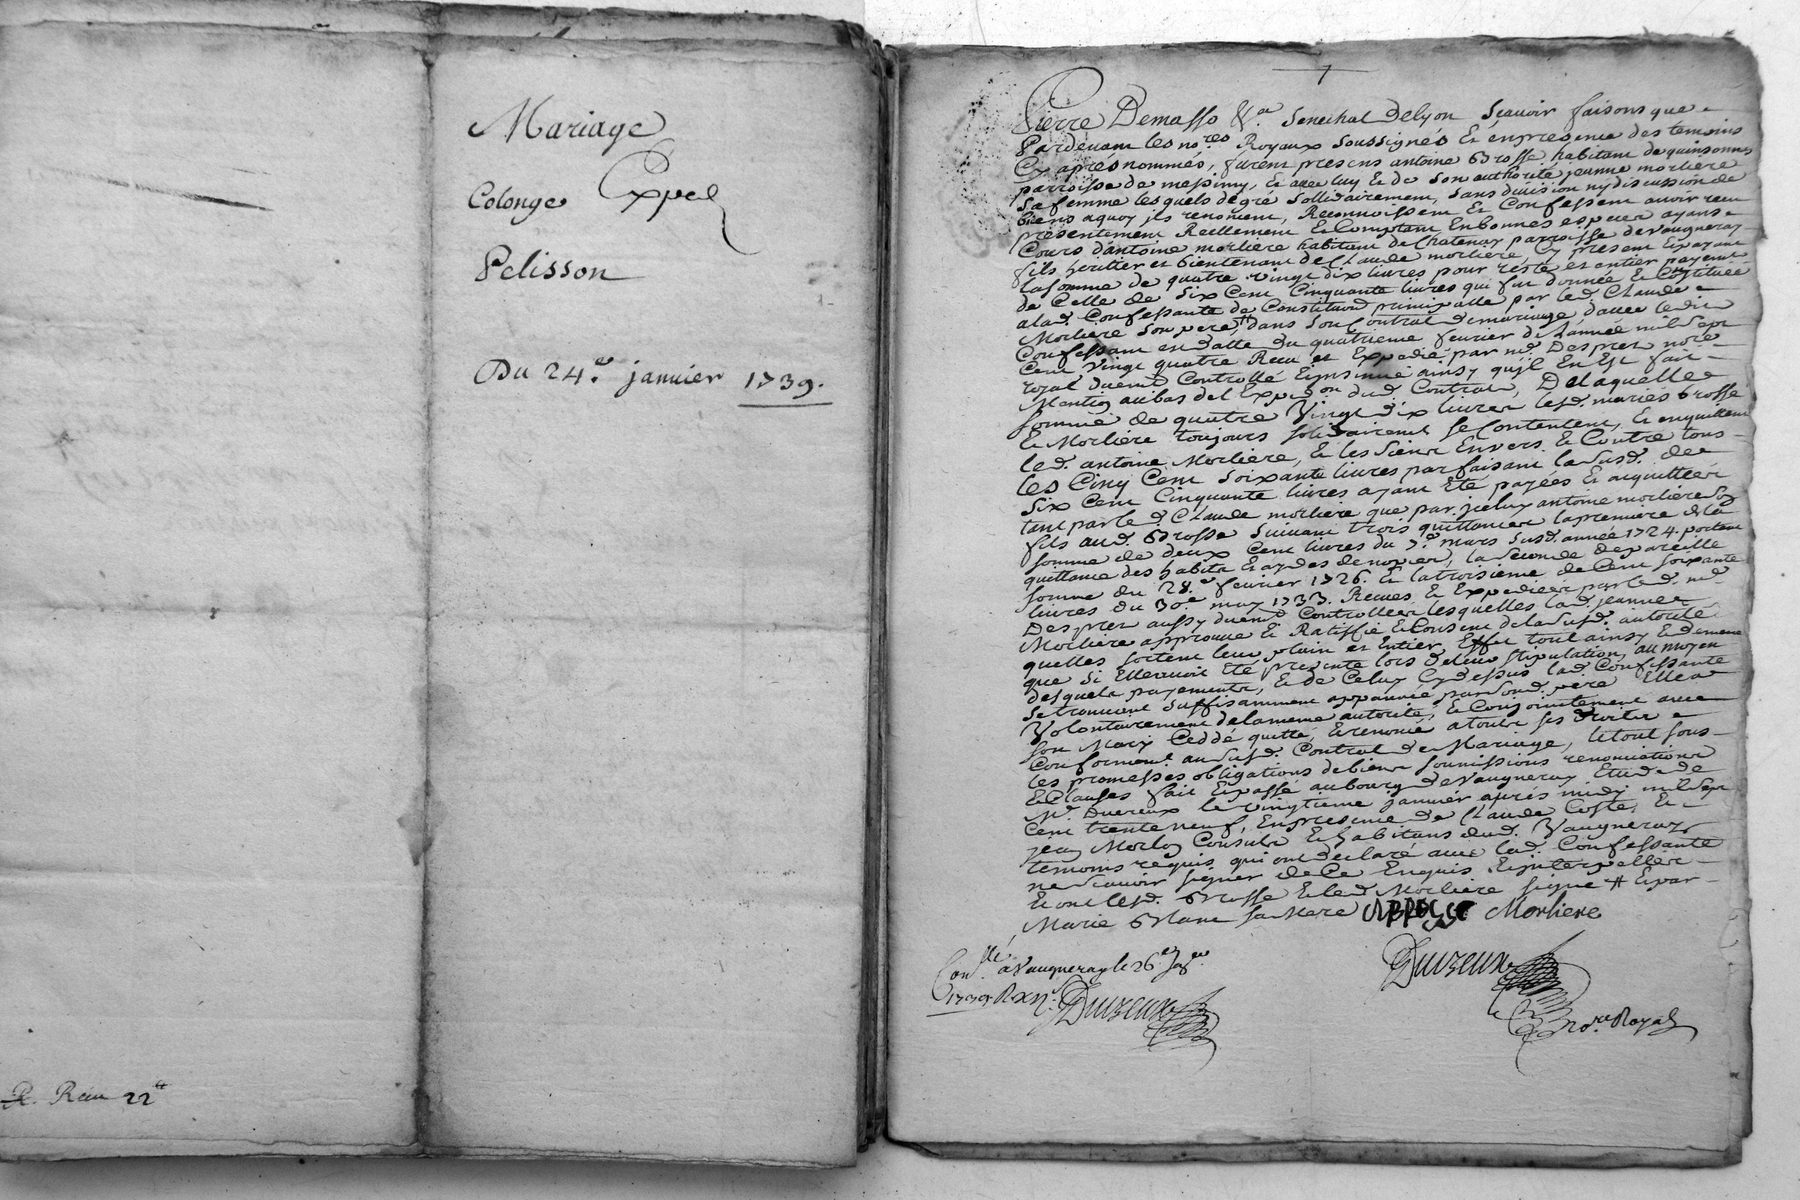 Mariage
Exped
Colonge
Pelisson
Du 24.e janvier 1739.
R. Reçu 22tt
7
Pierre Demasso &.a Senechal delyon Scavoir faisons que
Pardevant les no.res Royaux soussignés et enpresence des temoins
Cy aprés nommés, furent presens antoine Brosse habitant de quinsonnas
parroisse de messimy, et avec luy et de son authorité jeanne morliere
sa femme lesquels de gré sollidairement, sans division ny discussion de
biens aquoy ils renoncent, Reconnoissent et Confessent avoir receu
presentement Reellement et Comptant En bonnes especes ayans
Cours d'antoine morliere habitant de Chatenay parroisse de vaugneray
fils heritier et bientenant de Claude morliere, Cy present et payant
la somme de quatre vingt dix livres pour reste et entier payement
de Celle de Six Cent Cinquante livres qui fut donnée et Constituée
a lad. Confessante de Constitution par led. Claude
Morliere son pere # dans son Contrat de mariage d'avec ledit
Confessant en datte du quatrieme fevrier de l'année mil Sept
Cent vingt quatre Receu et Expedié par m.e Desprez no.re
royal duement Controllé et insinué ainsy qu'jl En Est fait
Mention au bas de l'Exped.on dud. Contrat, De laquelle
somme de quatre Vingt dix livres lesd. mariés Brosse
et Morliere toujours solidairement se Contentent, et enquittent
led. antoine Morliere, et les Siens Envers et Contre tous
les Cinq Cent Soixante livres parfaisant la susd. de
Six Cent Cinquante livres ayant Eté payées et acquittées
tant par led. Claude morliere que par jceluy antoine morliere son
fils aud. Brosse suivant trois quittances la premiere de la
somme de deux Cent livres du 7.e mars susd. année 1724. portant
quittance des habits, la seconde de pareille
somme du 28.e fevrier 1726. et la troisieme de Cent soixante
livres du 30.e may 1733. Receues et Expediées par led. m.e
Desprez aussy duem.t Controllées lesquelles lad. jeanne
Morliere approuve et Ratiffie et Consent de la susd. autorité
quelles sortent leur plain et Entier Effet tout ainsy et de meme
que si Elle avoit Eté presente lors de leur stipulation, au moyen
desquels payements, et de Celuy Cy dessus lad. Confessante
se trouvant suffisamment appannée par sond. pere Elle a
Volontairement de la meme autorité, et Conjointement avec
son Mary Ceddé quitté, et renoncé a toutes ses droits
Conformem.t au susd. Contrat de Mariage, le tout sous
les promesses obligations de biens soumissions renonciations
et Clauses fait et passé au bourg de Vaugneray Etude de
M.e Duvreux le vingtieme janvier aprés midy mil Sept
Cent trente neuf, En presence de Claude Coste, et
jean Morlon Consuls et habitans dud. Vaugneray
temoins requis qui ont declaré avec lad. Confessante
ne Scavoir signer de Ce Enquis et interpellés
et ont lesd. Brosse et led. Morliere signé # et par
Marie Blanc sa Mere ABROSSE Morliere
Con.llé a Vaugneray le 26.e Jan.er
1739
no.re Royal